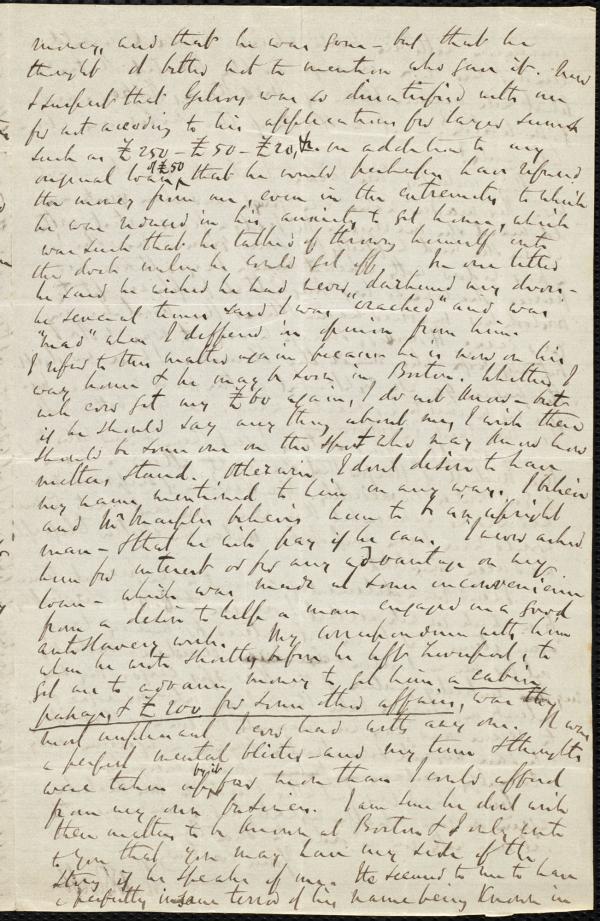 money, and that he was gone - but that he
thought it better not to mention who gave it. Now
I suspect that Gilroy was so dissatisfied with me
for not acceding to his applications for larger sums
such as £250 - £50 - £20, in addition to my
original loan of £50, that he would perhaps have refused
the money from me, even in the extremity to which
he was reduced in his anxiety to get home, which
was such that he talked of throwing himself into
the dock unless he could get off. In one letter
he said he wished he had never darkened my doors -
he several times said I was "cracked" and was
"mad" when I differed in opinion from him.
I refer to this matter again because he is now on his
way home & he may be soon in Boston. Whether I
will ever get my £60 again, I do not know - but
if he should say any thing about me, I wish there
should be some one on the spot who may know how
matters stand. Otherwise I dont desire to have
my name mentioned to him in any way. I believe
and Mr believes him to be an upright
man - & that he will pay if he can. I never asked
him for interest or for any advantage on my
loan - which was made at some inconvenience
from a desire to help a man engaged in a good
antislavery work. My correspondence with him
when he wrote shortly before he left Liverpool, to
get me to advance money to get him a cabin
passage, & £200 for some other affairs, was the
most unpleasant I ever had with any one. It was
a perfect mental blister - and my time & thoughts
were taken up by it far more than I could afford
from my own business. I am sure he dont wish
these matters to be known at Boston & I only write
to you that you may have my side of the
story if he speaks of me. He seemed to me to have
a perfectly insane terror of his name being known in